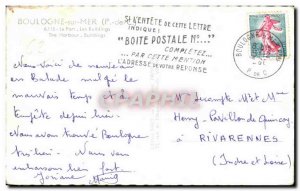 BOULOGNE-sur-MER (P.-de-C.)
The Harbour, Buildings
SI L'ENTÊTE DE CETTE LETTRE
INDIQUE:
"BOITE POSTALE N°..."
COMPLÉTEZ...
...PAR CETTE MENTION
L'ADRESSE DE VOTRE RÉPONSE
BOULOGNE
P. DE C.
Nous voici de nouveau
en Balade malgré le
mauvais temps à
tempête depuis hier
Nous avons trouvé Boulogne
très bien. Nous vous
embrassons bien fort
Josiane
Mr Decompte et Mme
Henry Pavillon de Quincay
à
RIVARENNES
(Indre et Loire)